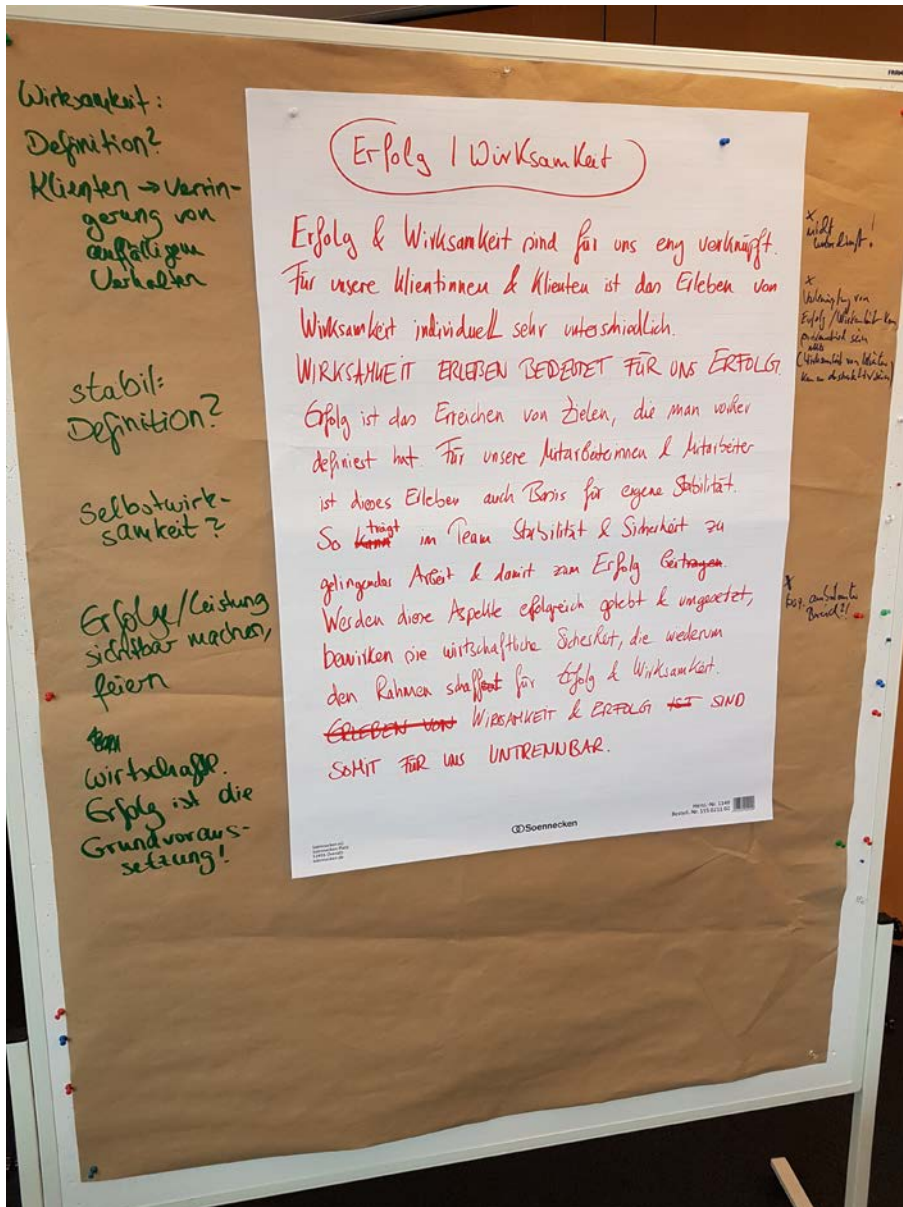 Wirksamkeit:
Definition?
Klienten → Verrin-
gerung von
auffälligem
Verhalten
stabil:
Definition?
Selbstwirk-
samkeit?
Erfolge/Leistung
sichtbar machen,
feiern
wirtschaftl.
Erfolg ist die
Grundvoraus-
setzung!
Erfolg / Wirksamkeit
Erfolg & Wirksamkeit sind für uns eng verknüpft.
Für unsere Klientinnen & Klienten ist das Erleben von
Wirksamkeit individuell sehr unterschiedlich.
WIRKSAMKEIT ERLEBEN BEDEUTET FÜR UNS ERFOLG.
Erfolg ist das Erreichen von Zielen, die man vorher
definiert hat. Für unsere Mitarbeiterinnen & Mitarbeiter
ist dieses Erleben auch Basis für eigene Stabilität.
So kann trägt im Team Stabilität & Sicherheit zu
gelingender Arbeit & damit zum Erfolg beitragen.
Werden diese Aspekte erfolgreich gelebt & umgesetzt,
bewirken sie wirtschaftliche Sicherheit, die wiederum
den Rahmen schafft für Erfolg & Wirksamkeit.
ERLEBEN VON WIRKSAMKEIT & ERFOLG IST SIND
SOMIT FÜR UNS UNTRENNBAR.
Soennecken
x
nicht
x
Verknüpfung von
Erfolg / Wirksamkeit kann
problematisch sein
(Wirksamkeit von Klienten
kann destruktiv sein)
x
bzgl. ambulanter
Bereich?!